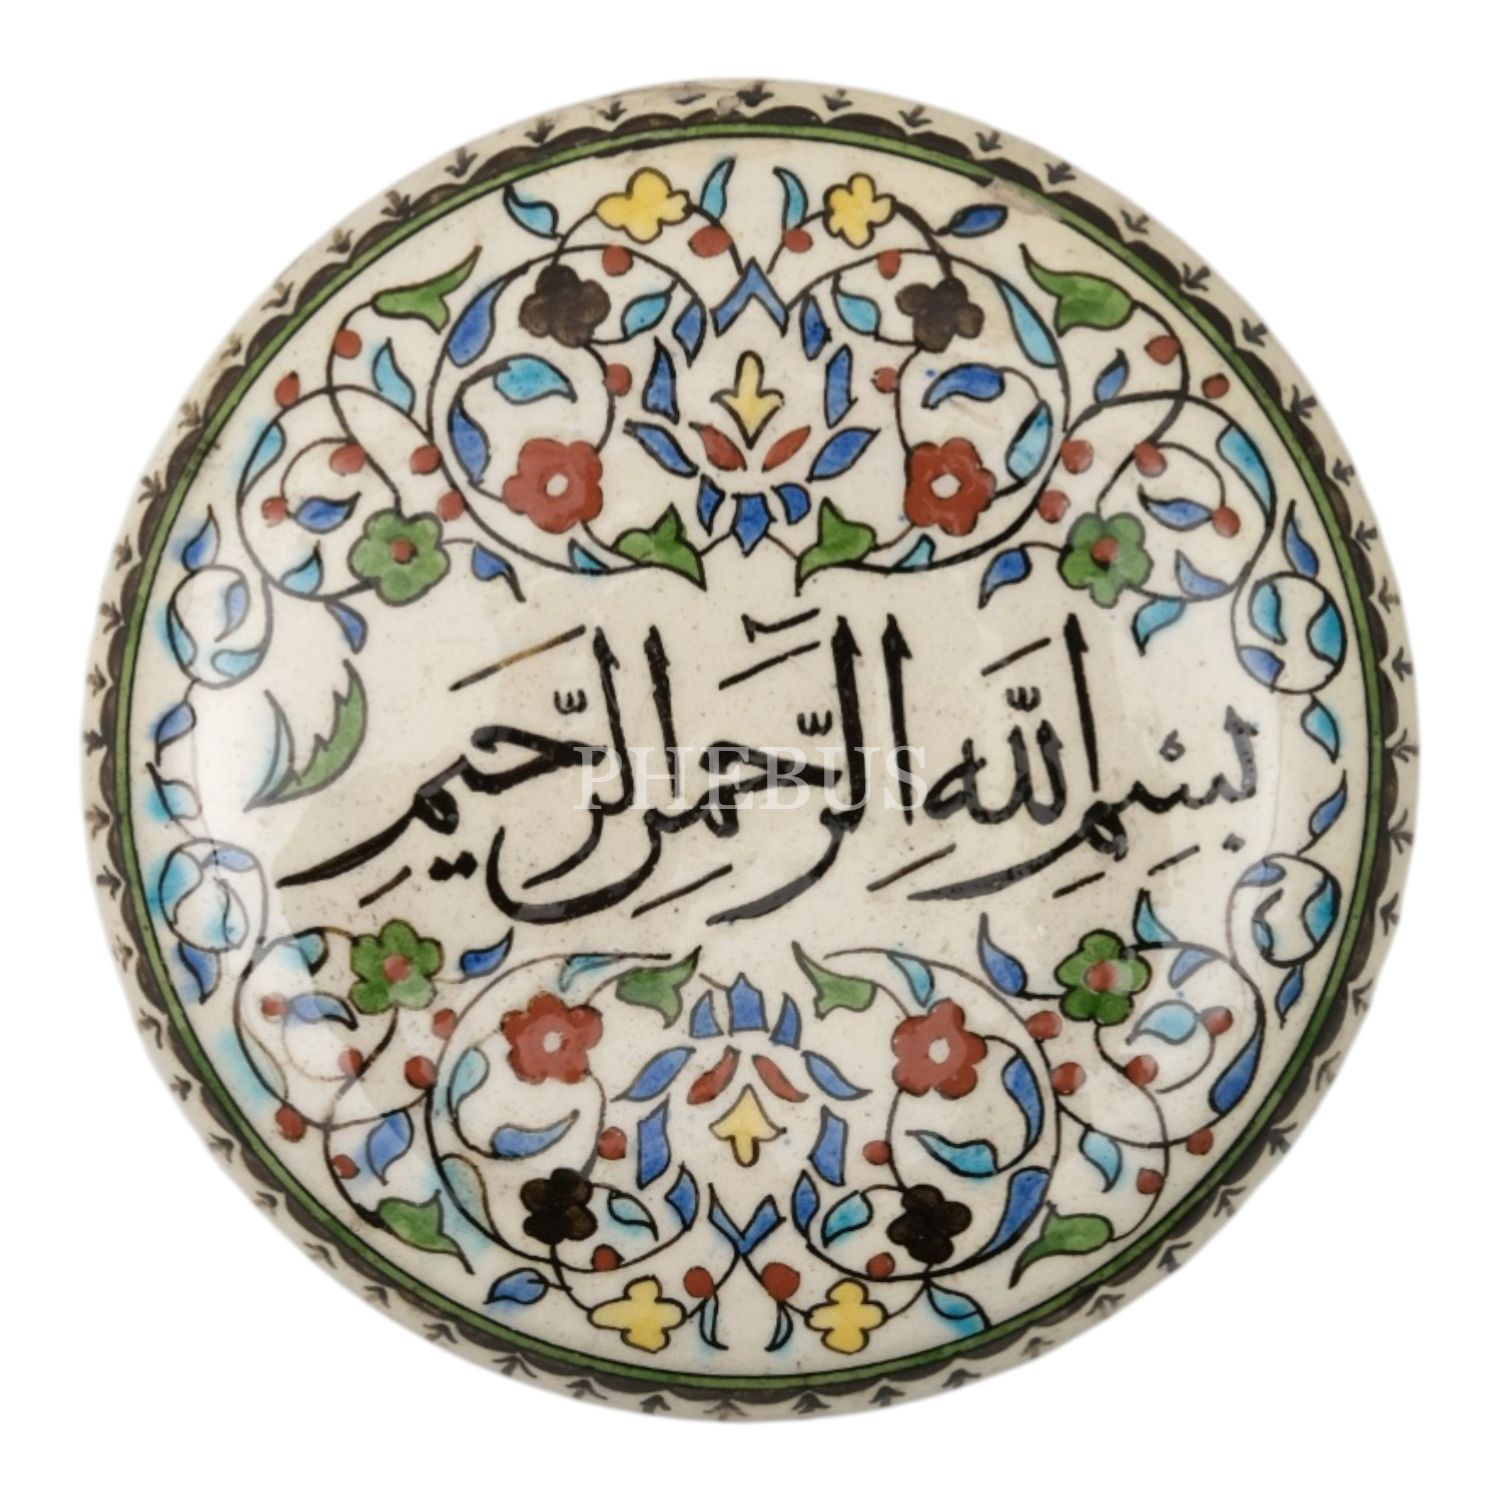 بِسْمِ اللّٰهِ الرَّحْمٰنِ الرَّحِيْمِ
PHEBUS